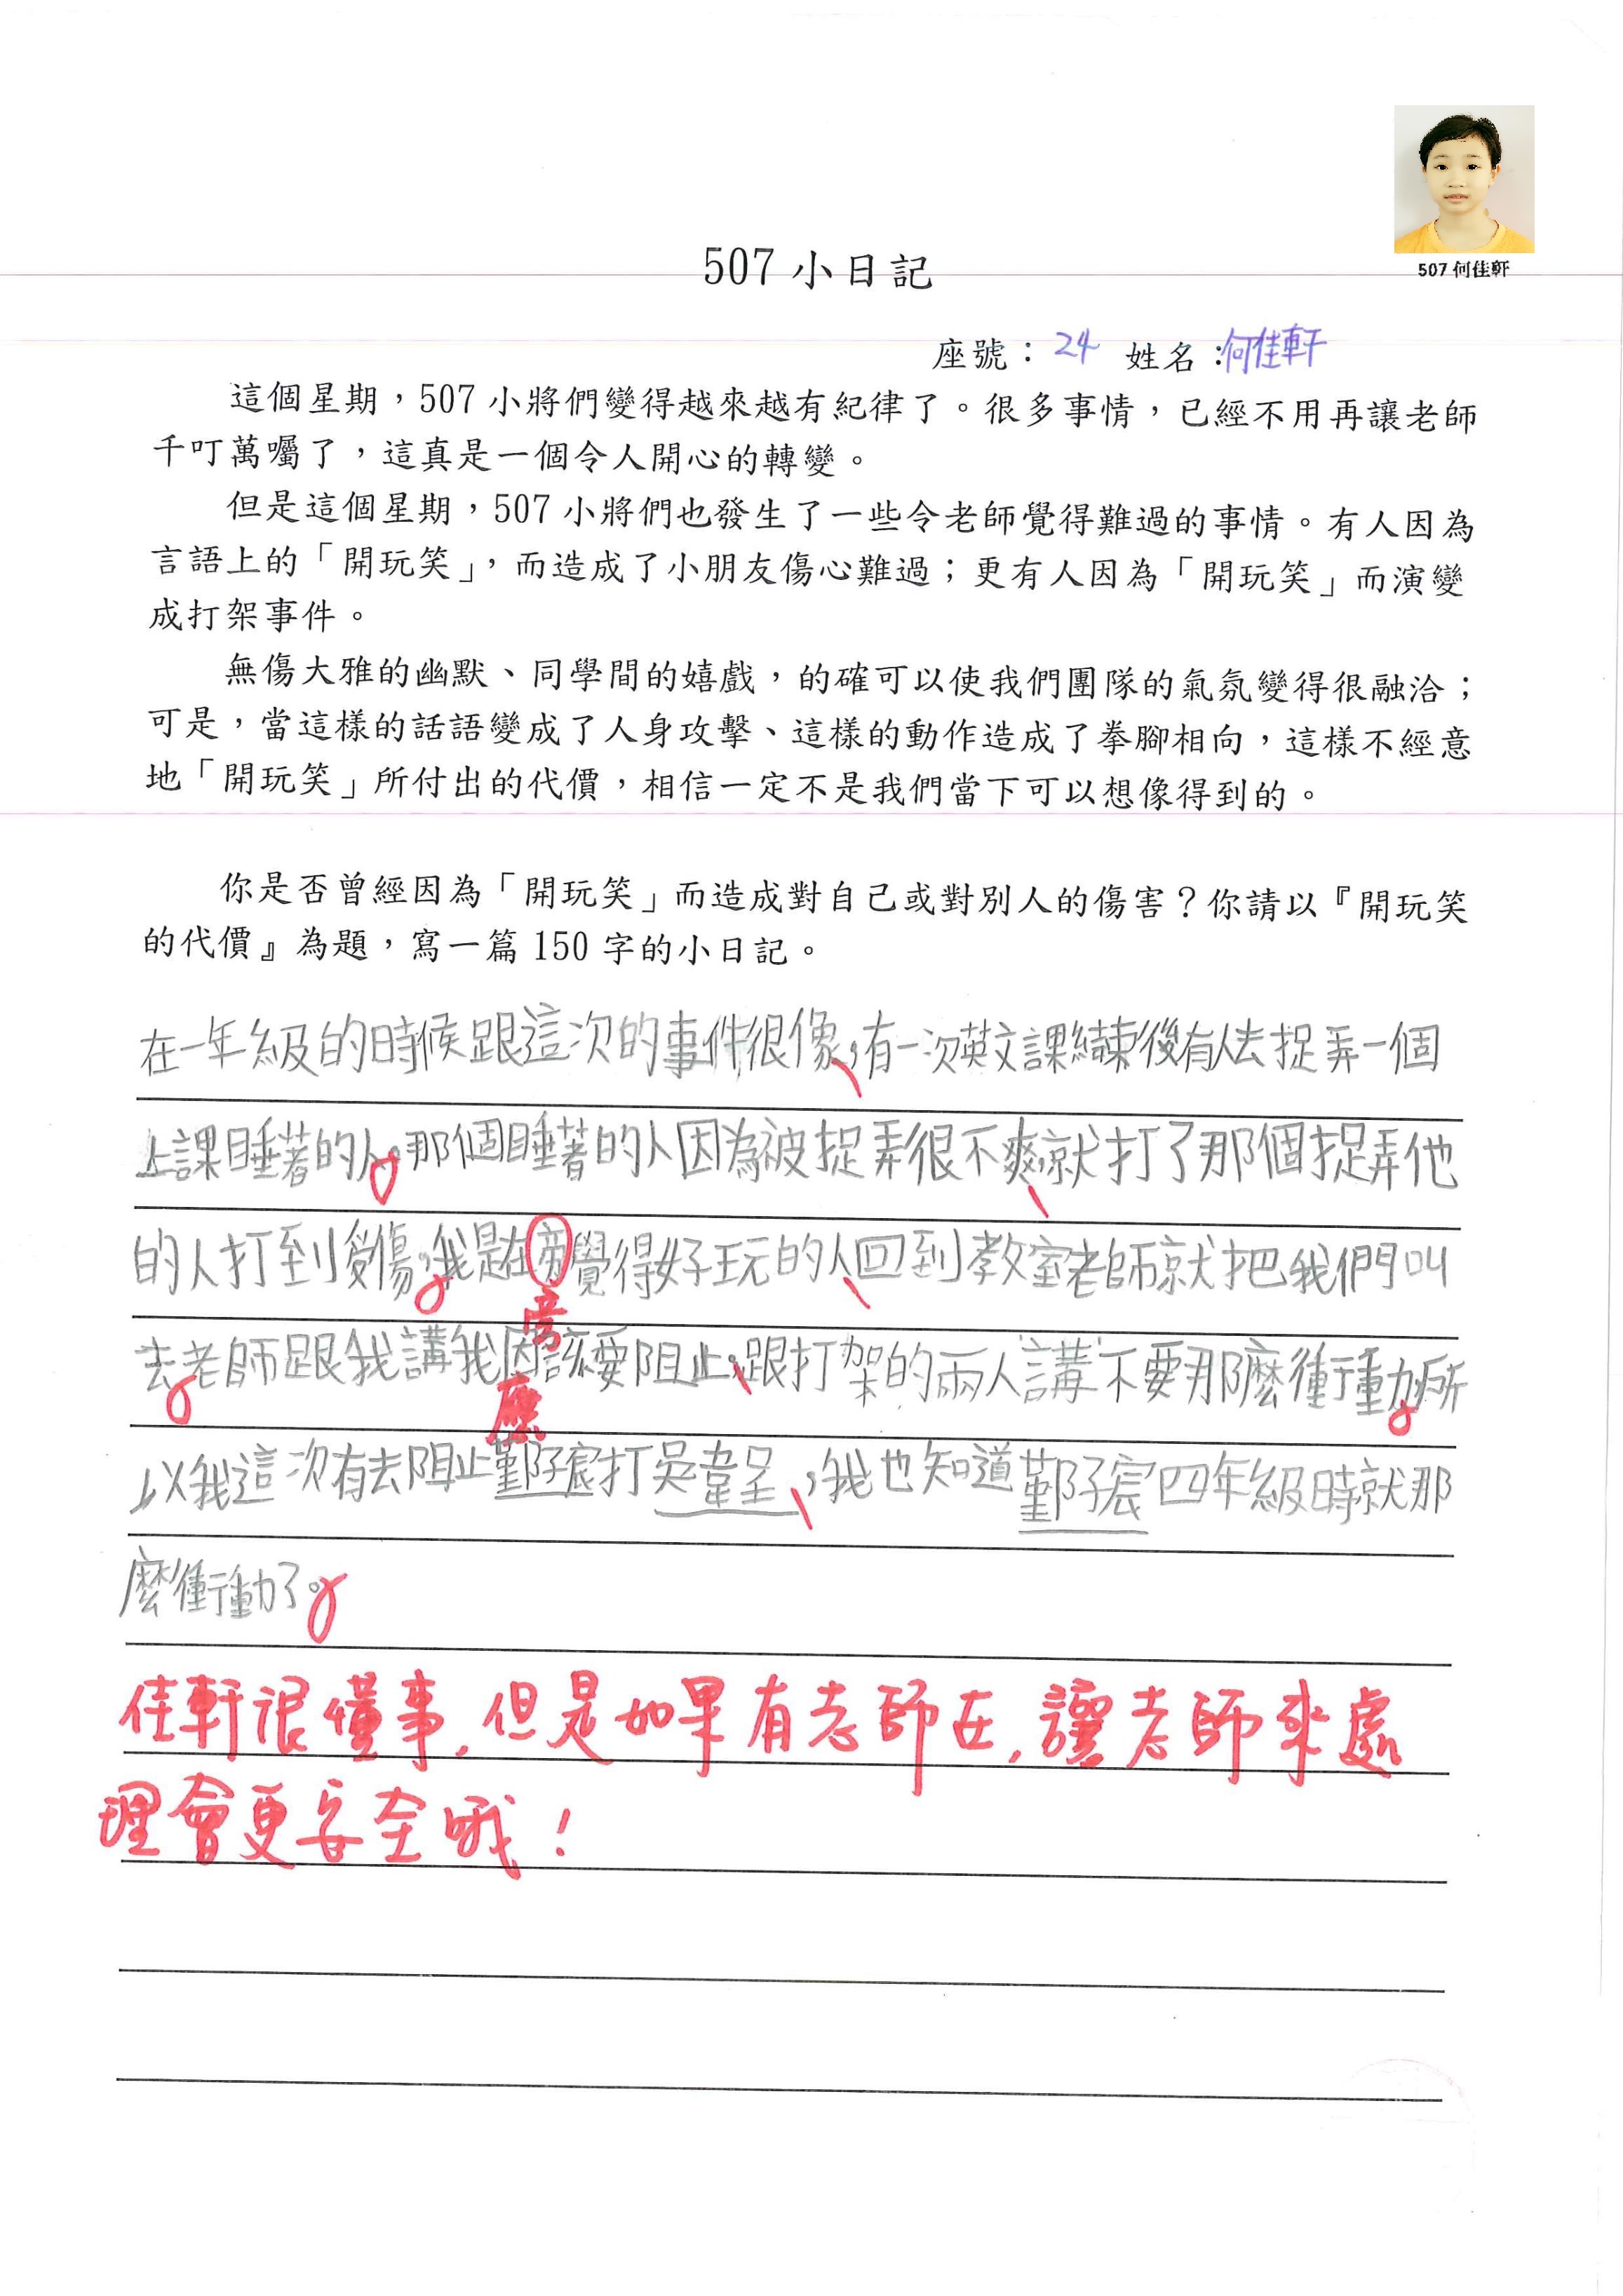 507 何佳軒
507 小日記
座號：24 姓名：何佳軒
這個星期，507 小將們變得越來越有紀律了。很多事情，已經不用再讓老師
千叮萬囑了，這真是一個令人開心的轉變。
但是這個星期，507 小將們也發生了一些令老師覺得難過的事情。有人因為
言語上的「開玩笑」，而造成了小朋友傷心難過；更有人因為「開玩笑」而演變
成打架事件。
無傷大雅的幽默、同學間的嬉戲，的確可以使我們團隊的氣氛變得很融洽；
可是，當這樣的話語變成了人身攻擊、這樣的動作造成了拳腳相向，這樣不經意
地「開玩笑」所付出的代價，相信一定不是我們當下可以想像得到的。
你是否曾經因為「開玩笑」而造成對自己或對別人的傷害？你請以『開玩笑
的代價』為題，寫一篇 150 字的小日記。
在一年級的時候跟這次的事件很像，有一次英文課結束後有人去捉弄一個
上課睡著的人。那個睡著的人因為被捉弄很不爽就打了那個捉弄他
的人打到受傷。我是在旁覺得好玩的人回到教室老師就把我們叫
旁
去老師跟我講我因該要阻止，跟打架的兩人講不要那麼衝動所
應
以我這次有去阻止鄞子宸打吳韋呈，我也知道鄞子宸四年級時就那
麼衝動了。
佳軒很懂事，但是如果有老師在，讓老師來處
理會更安全哦！